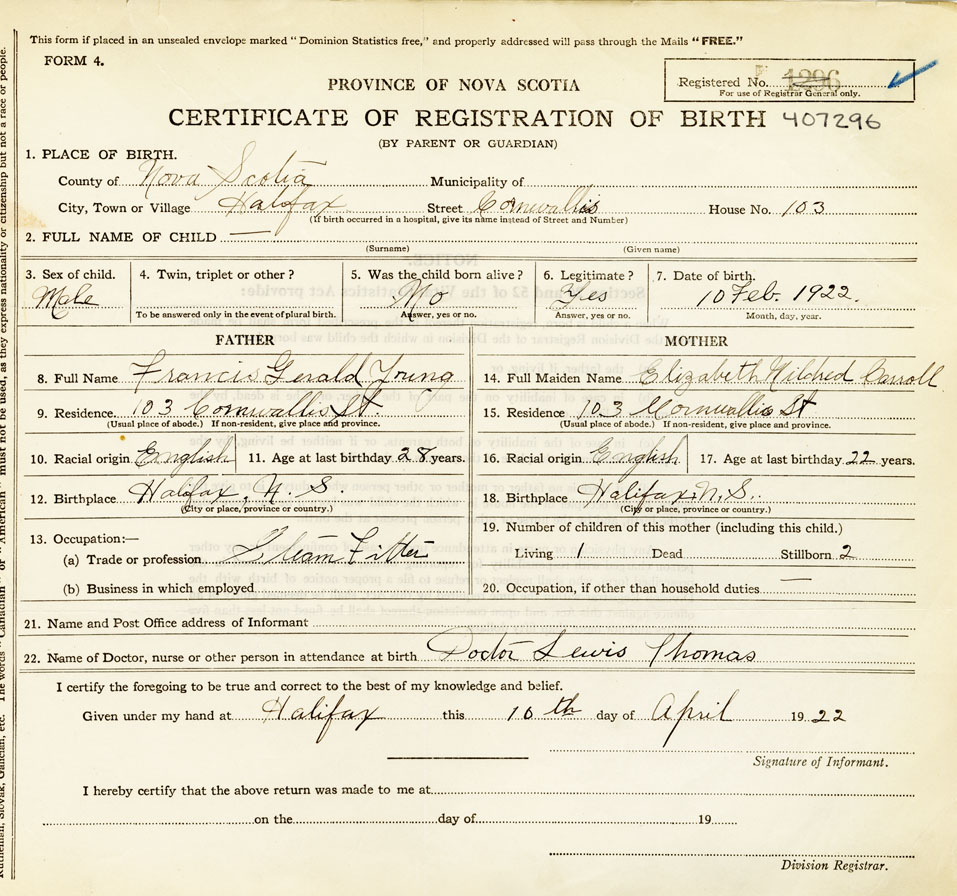 This form if placed in an unsealed envelope marked "Dominion Statistics free," and properly addressed will pass through the Mails "FREE."
FORM 4.
PROVINCE OF NOVA SCOTIA
Registered No. 1296
For use of Registrar General only.
CERTIFICATE OF REGISTRATION OF BIRTH 407296
(BY PARENT OR GUARDIAN)
1. PLACE OF BIRTH.
County of Nova Scotia Municipality of
City, Town or Village Halifax Street Cornwallis House No. 103
(If birth occurred in a hospital, give its name instead of Street and Number)
2. FULL NAME OF CHILD —
(Surname) (Given name)
3. Sex of child. 4. Twin, triplet or other? 5. Was the child born alive? 6. Legitimate? 7. Date of birth.
Male No Yes 10 Feb. 1922.
To be answered only in the event of plural birth. Answer, yes or no. Answer, yes or no. Month, day, year.
FATHER MOTHER
8. Full Name Francis Gerald Young 14. Full Maiden Name Elizabeth Mildred Carroll
9. Residence. 103 Cornwallis St. 15. Residence 103 Cornwallis St
(Usual place of abode.) If non-resident, give place and province. (Usual place of abode.) If non-resident, give place and province.
10. Racial origin English 11. Age at last birthday 28 years. 16. Racial origin English 17. Age at last birthday 22 years.
12. Birthplace Halifax, N. S. 18. Birthplace Halifax N.S.
(City or place, province or country.) (City or place, province or country.)
13. Occupation:— 19. Number of children of this mother (including this child.)
(a) Trade or profession Steam Fitter Living 1 Dead Stillborn 2
(b) Business in which employed 20. Occupation, if other than household duties —
21. Name and Post Office address of Informant
22. Name of Doctor, nurse or other person in attendance at birth Doctor Lewis Thomas
I certify the foregoing to be true and correct to the best of my knowledge and belief.
Given under my hand at Halifax this 10th day of April 1922
Signature of Informant.
I hereby certify that the above return was made to me at
on the day of 19
Division Registrar.
Ruthenian, Slovak, Galician, etc. The words "Canadian" or "American" must not be used, as they express nationality or citizenship but not a race or people.